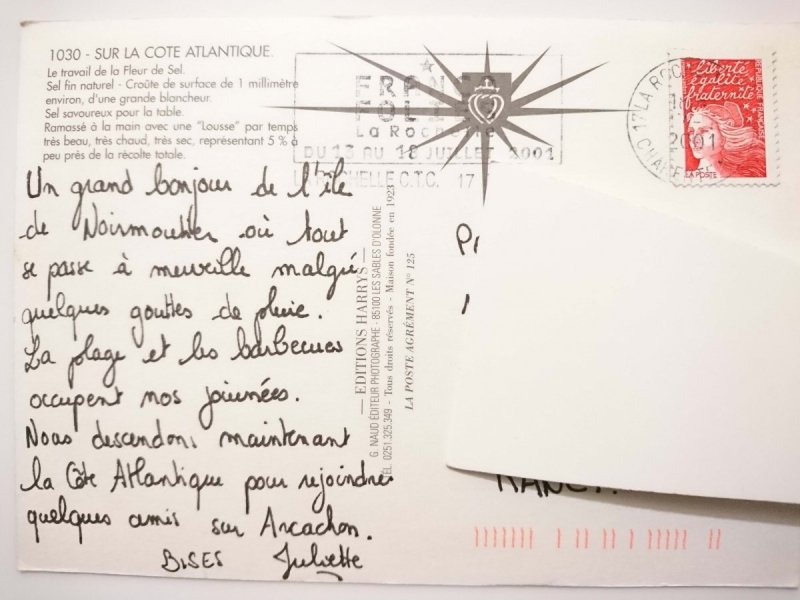 1030 - SUR LA COTE ATLANTIQUE.
Le travail de la Fleur de Sel.
Sel fin naturel - Croûte de surface de 1 millimètre
environ, d'une grande blancheur.
Sel savoureux pour la table.
Ramassé à la main avec une "Lousse" par temps
très beau, très chaud, très sec, représentant 5 % à
peu près de la récolte totale.
Un grand bonjour de l'île
de Noirmoutier où tout
se passe à merveille malgré
quelques gouttes de pluie.
La plage et les barbecues
occupent nos journées.
Nous descendons maintenant
la Côte Atlantique pour rejoindre
quelques amis sur Arcachon.
BISES Juliette
La Rochelle
DU 13 AU 18 JUILLET 2001
LA ROCHELLE C.T.C. 17
— EDITIONS HARRYS —
G. NAUD ÉDITEUR PHOTOGRAPHE - 85100 LES SABLES D'OLONNE
TÉL. 0251.325.349 - Tous droits réservés - Maison fondée en 1923
LA POSTE AGRÉMENT N° 125
17 LA ROC
18
2001
liberté
égalité
fraternité
RÉPUBLIQUE FRANÇAISE
LA POSTE